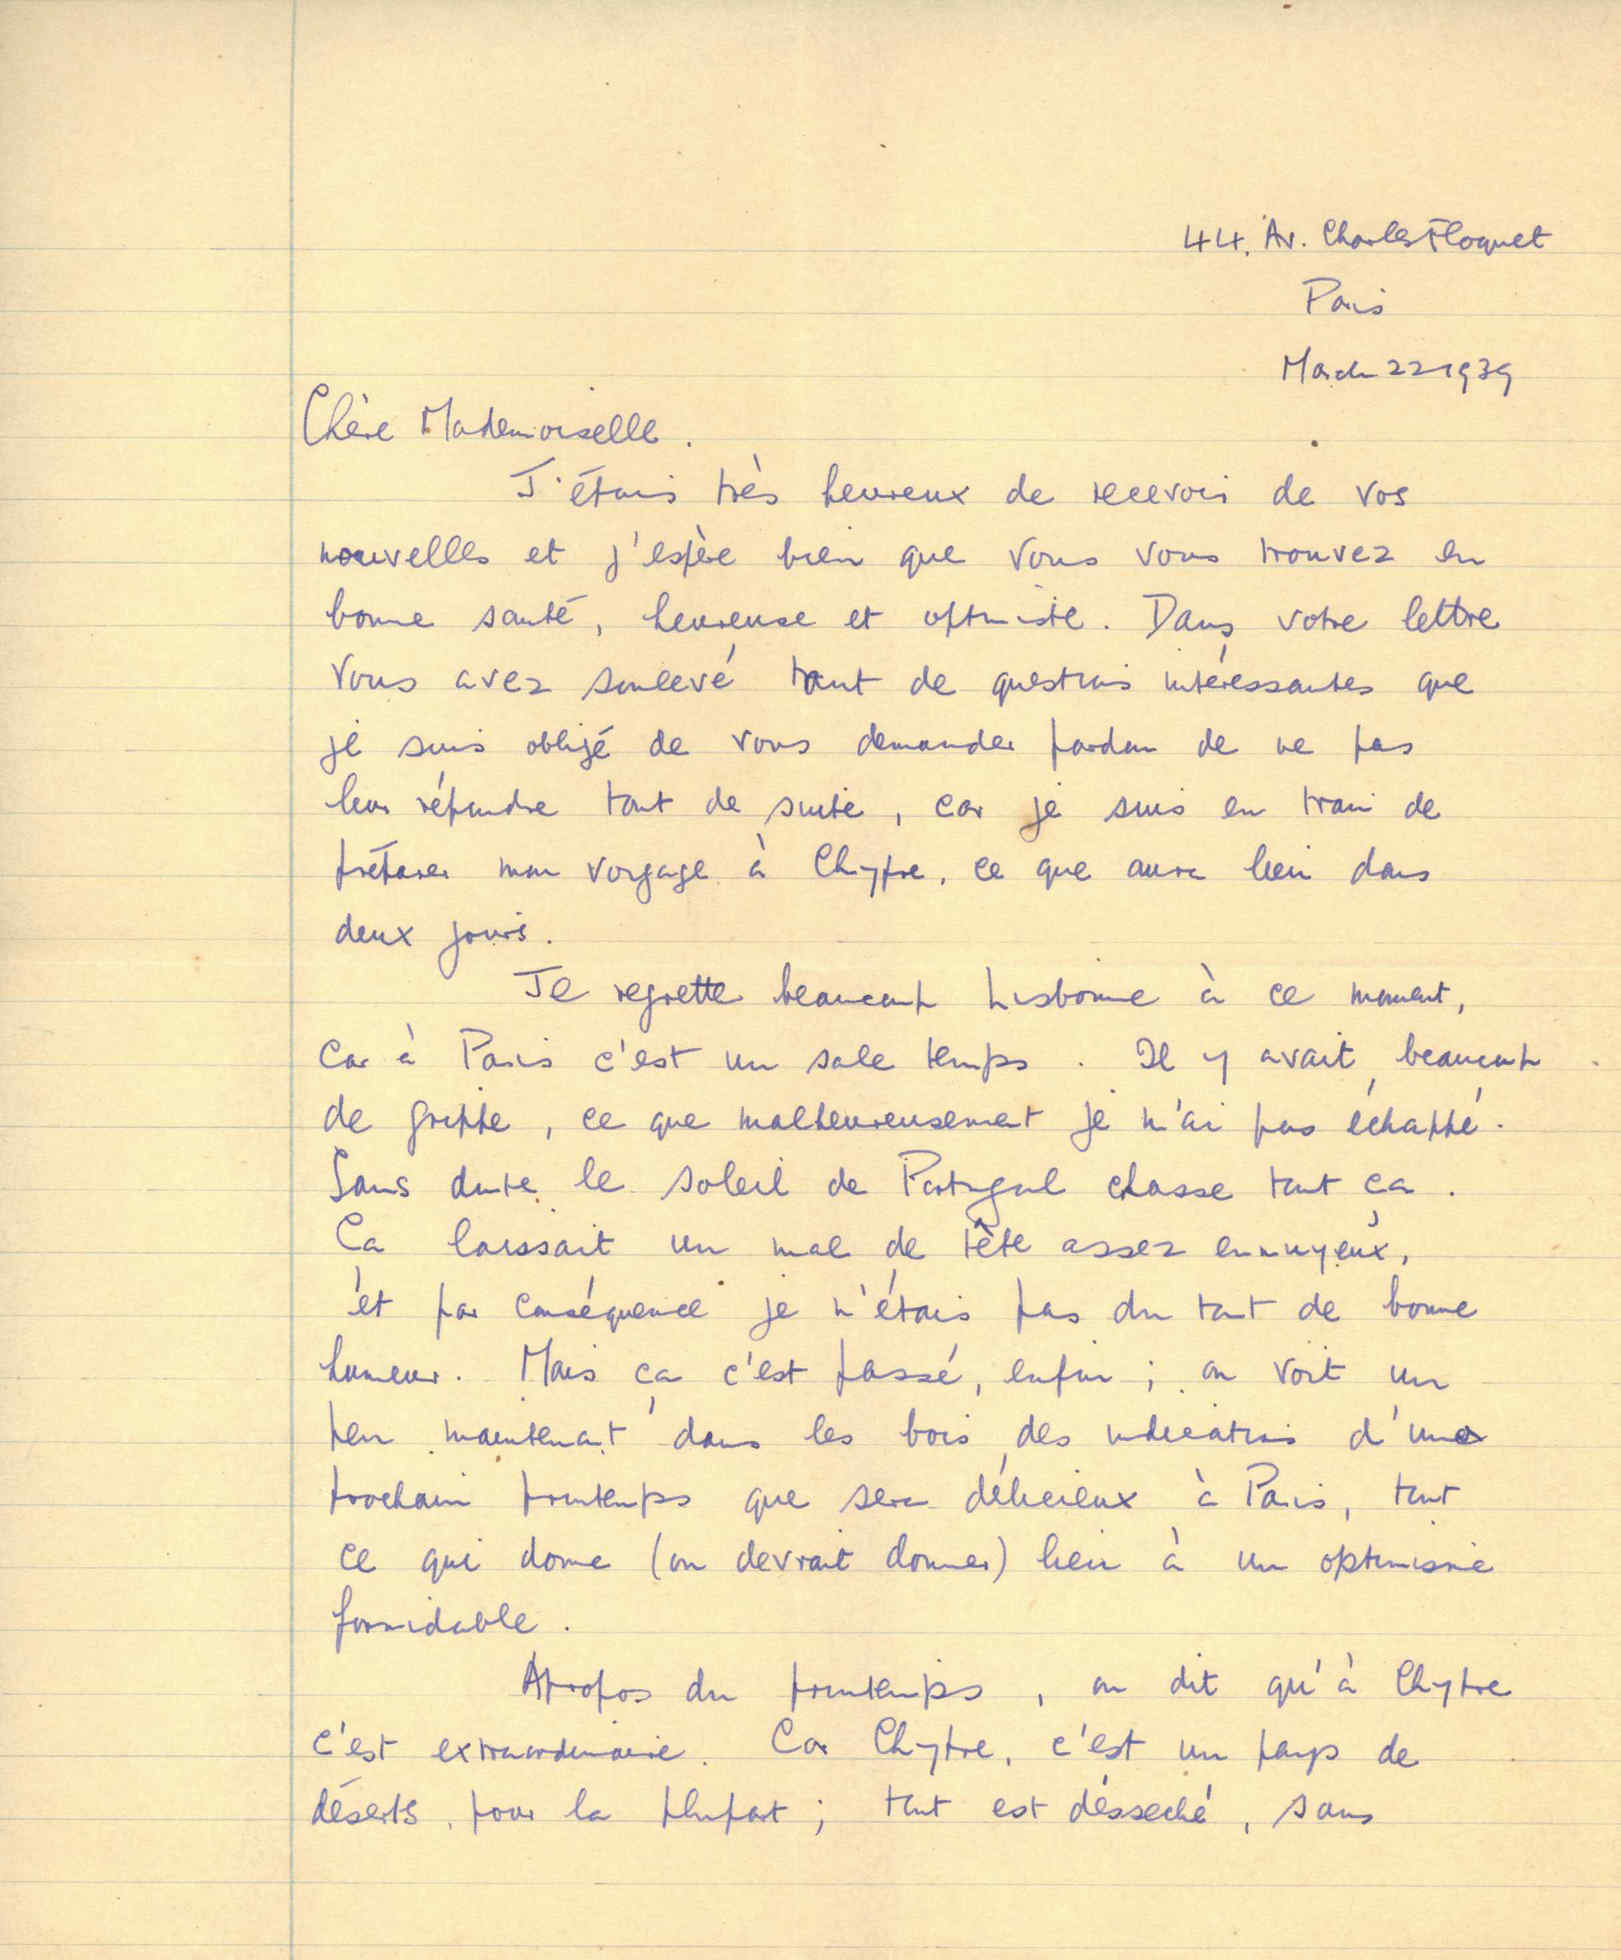 44, Av. Charles Floquet
Paris
March 22 1939
Chère Mademoiselle.
J'étais très heureux de recevoir de vos
nouvelles et j'espère bien que vous vous trouvez en
bonne santé, heureuse et optimiste. Dans votre lettre
vous avez soulevé tant de questions intéressantes que
je suis obligé de vous demander pardon de ne pas
leur répondre tout de suite, car je suis en train de
préparer mon voyage à Chypre, ce que aura lieu dans
deux jours.
Je regrette beaucoup Lisbonne à ce moment,
car à Paris c'est un sale temps. Il y avait beaucoup
de grippe, ce que malheureusement je n'ai pas échappé.
Sans doute le soleil de Portugal chasse tout ça.
Ça laissait un mal de tête assez ennuyeux,
et par conséquence je n'étais pas du tout de bonne
humeur. Mais ça c'est passé, enfin; on voit un
peu maintenant dans les bois des indications d'un
prochain printemps que sera délicieux à Paris, tout
ce qui donne (ou devrait donner) lieu à un optimisme
formidable.
Apropos du printemps, on dit qu'à Chypre
c'est extraordinaire. Car Chypre, c'est un pays de
déserts, pour la plupart; tout est désseché, sans